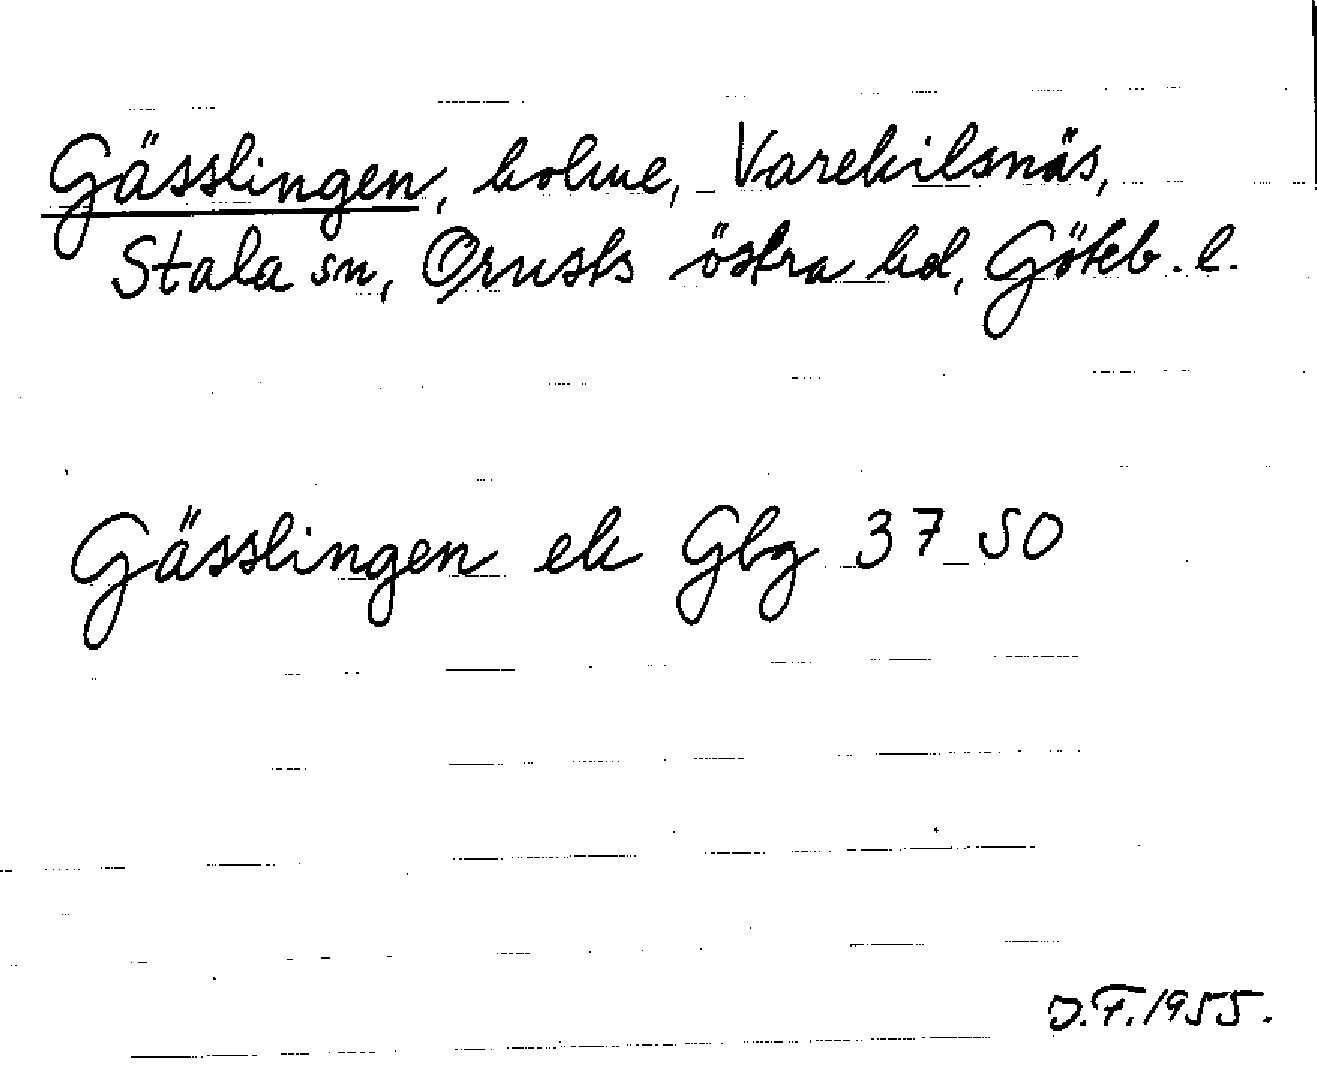 Gässlingen, holme, Varekilsnäs,
Stala sn, Orusts östra hd, Göteb. l.
Gässlingen ek Gbg 37 50
O.F. 1955.